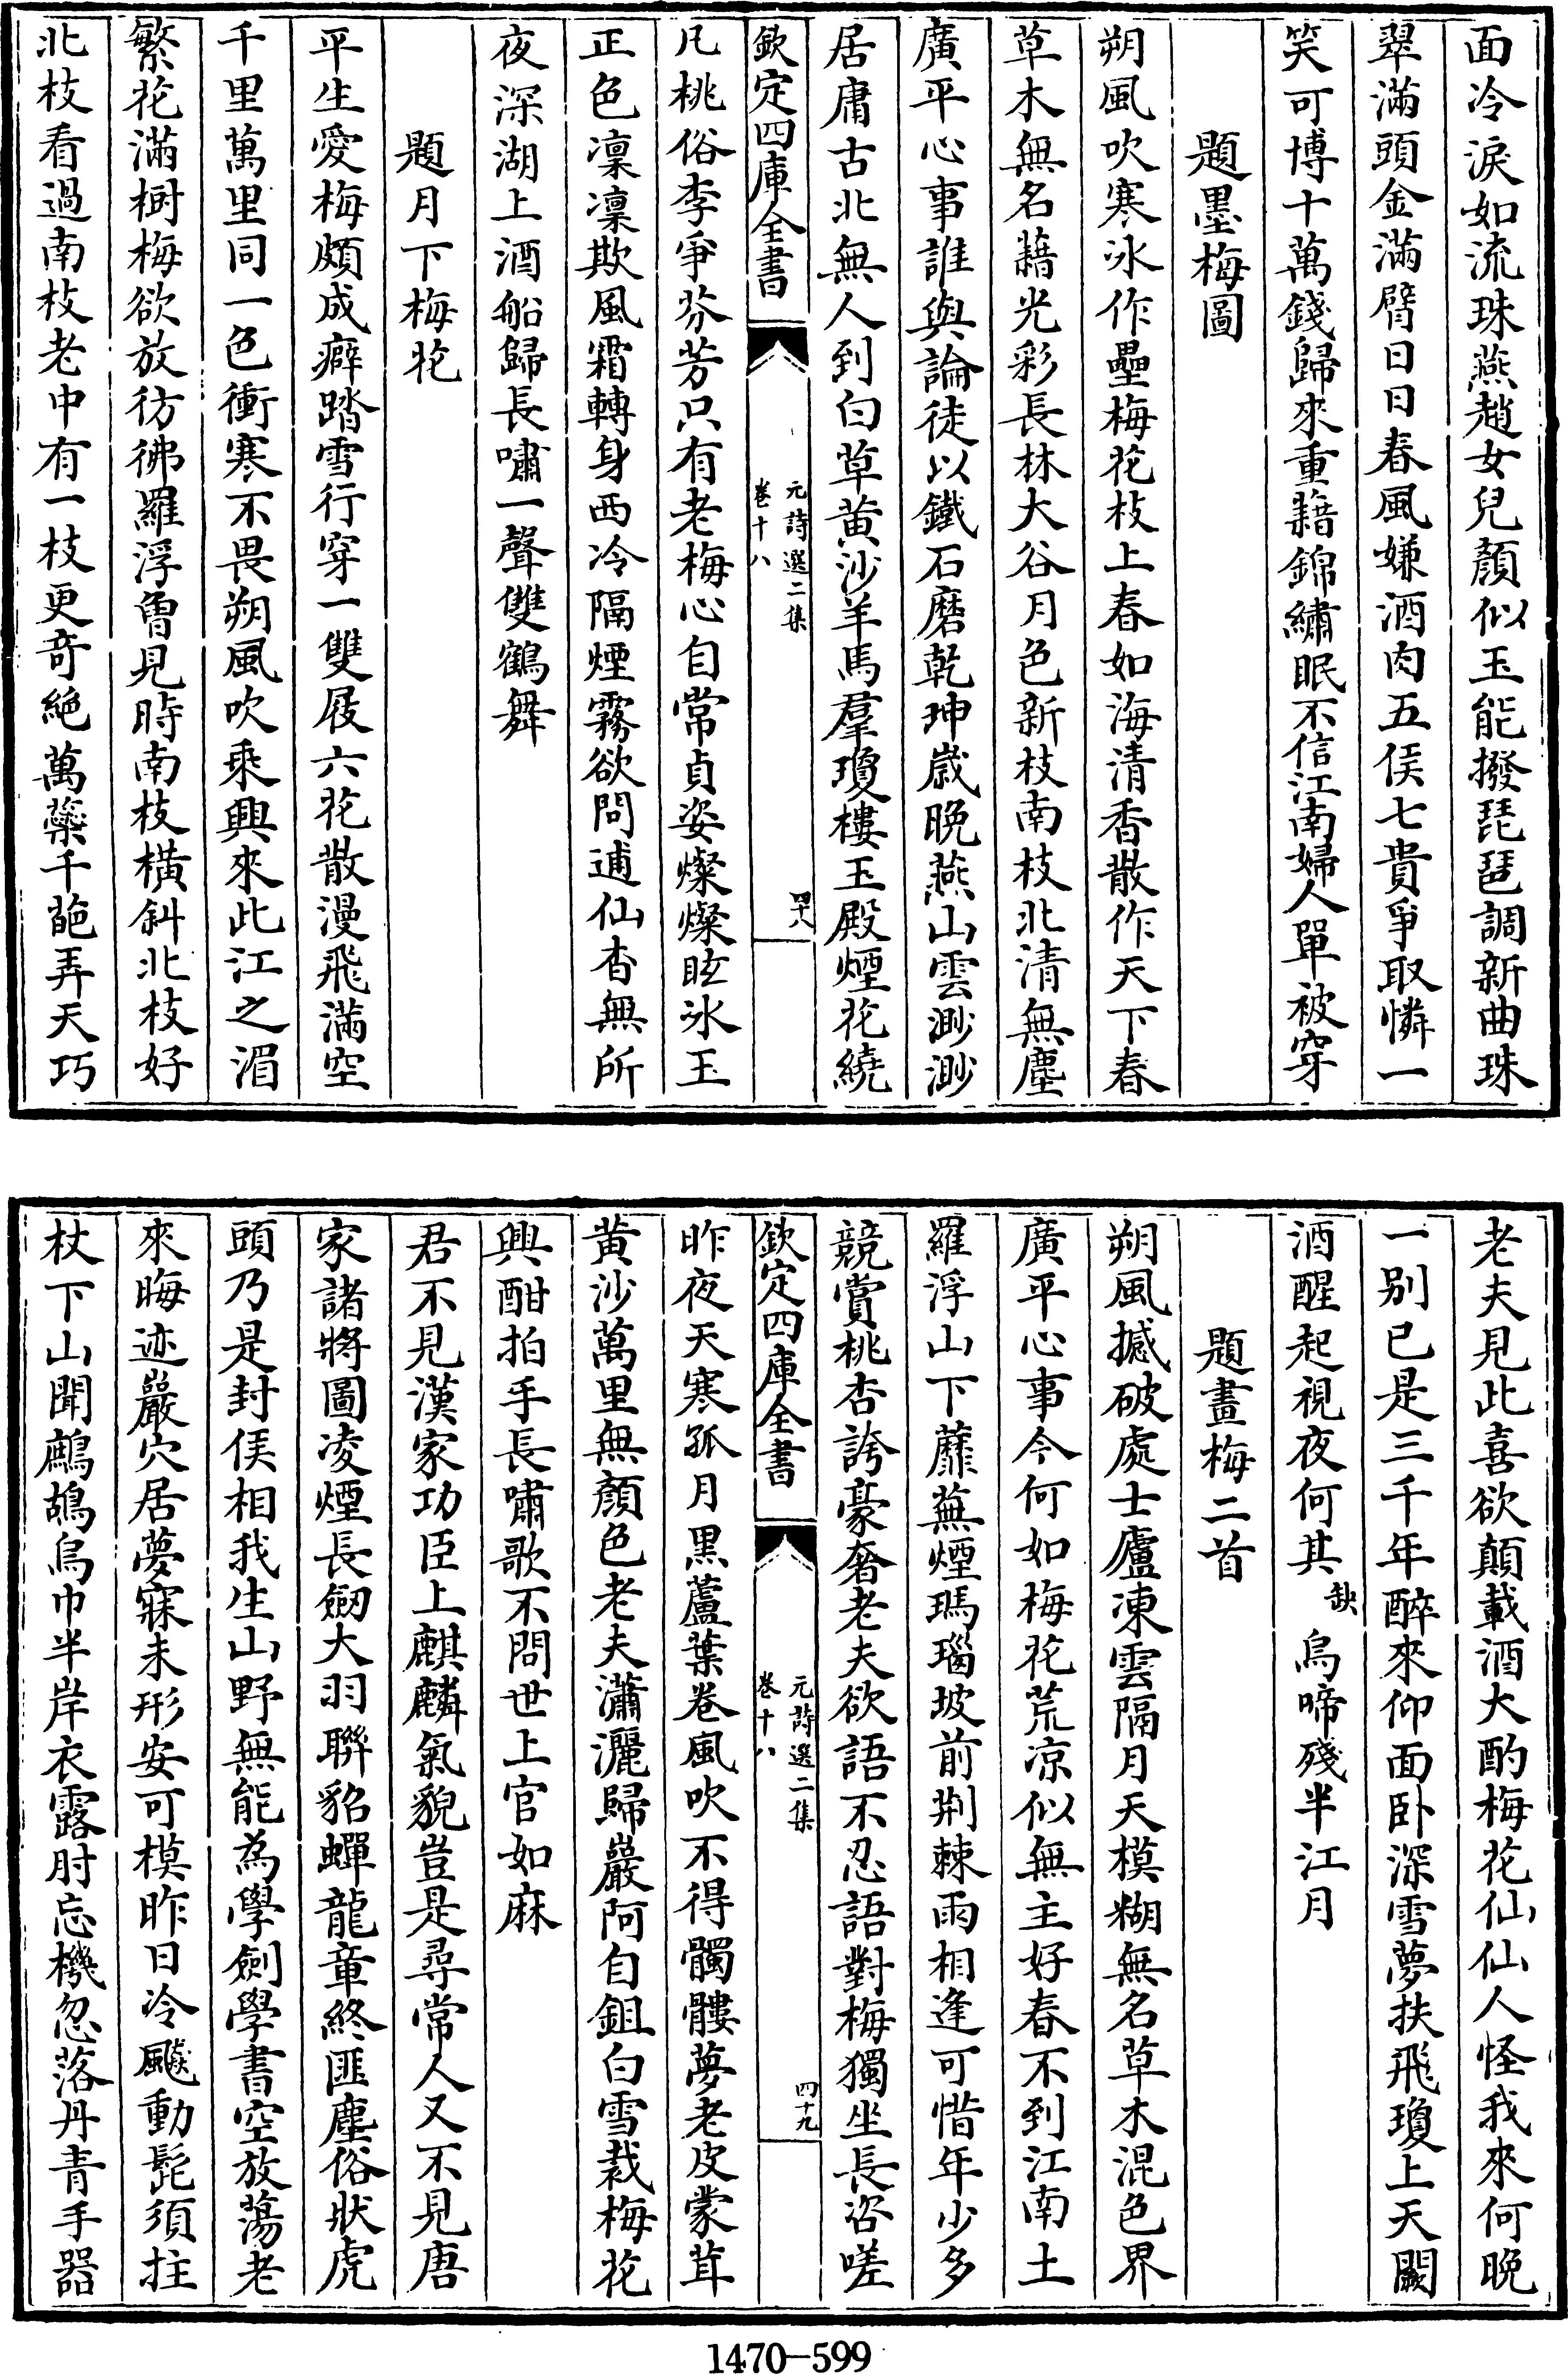 面冷淚如流珠燕趙女兒顏似玉能撥琵琶調新曲珠
翠滿頭金滿臂日日春風嫌酒肉五侯七貴爭取憐一
笑可博十萬錢歸來重藉錦繡眠不信江南婦人單被穿
題墨梅圖
朔風吹寒冰作壘梅花枝上春如海清香散作天下春
草木無名藉光彩長林大谷月色新枝南枝北清無塵
廣平心事誰與論徒以鐵石磨乾坤歲晩燕山雲渺渺
居庸古北無人到白草黃沙羊馬羣瓊樓玉殿煙花繞
欽定四庫全書
元詩選二集
卷十八
四十八
凡桃俗李爭芬芳只有老梅心自常貞姿燦燦眩冰玉
正色凜凜欺風霜轉身西冷隔煙霧欲問逋仙杳無所
夜深湖上酒船歸長嘯一聲雙鶴舞
題月下梅花
平生愛梅頗成癖踏雪行穿一雙屐六花散漫飛滿空
千里萬里同一色衝寒不畏朔風吹乘興來此江之湄
繁花滿樹梅欲放彷彿羅浮曾見時南枝橫斜北枝好
北枝看過南枝老中有一枝更奇絶萬蘂千葩弄天巧
老夫見此喜欲顛載酒大酌梅花仙仙人怪我來何晩
一别已是三千年醉來仰面卧深雪夢扶飛瓊上天闕
酒醒起視夜何其缺烏啼殘半江月
題畫梅二首
朔風撼破處士廬凍雲隔月天模糊無名草木混色界
廣平心事今何如梅花荒凉似無主好春不到江南土
羅浮山下蘼蕪煙瑪瑙坡前荆棘雨相逢可惜年少多
競賞桃杏誇豪奢老夫欲語不忍語對梅獨坐長咨嗟
欽定四庫全書
元詩選二集
卷十八
四十九
昨夜天寒孤月黑蘆葉卷風吹不得髑髏夢老皮蒙茸
黃沙萬里無顏色老夫瀟灑歸巖阿自鉏白雪裁梅花
興酣拍手長嘯歌不問世上官如麻
君不見漢家功臣上麒麟氣貌豈是尋常人又不見唐
家諸將圖凌煙長劒大羽聯貂蟬龍章終匪塵俗狀虎
頭乃是封侯相我生山野無能為學劍學書空放蕩老
來晦迹巖穴居夢寐未形安可模昨日冷飈動髭須拄
杖下山聞鷓鴣烏巾半岸衣露肘忘機忽落丹青手器
1470—599